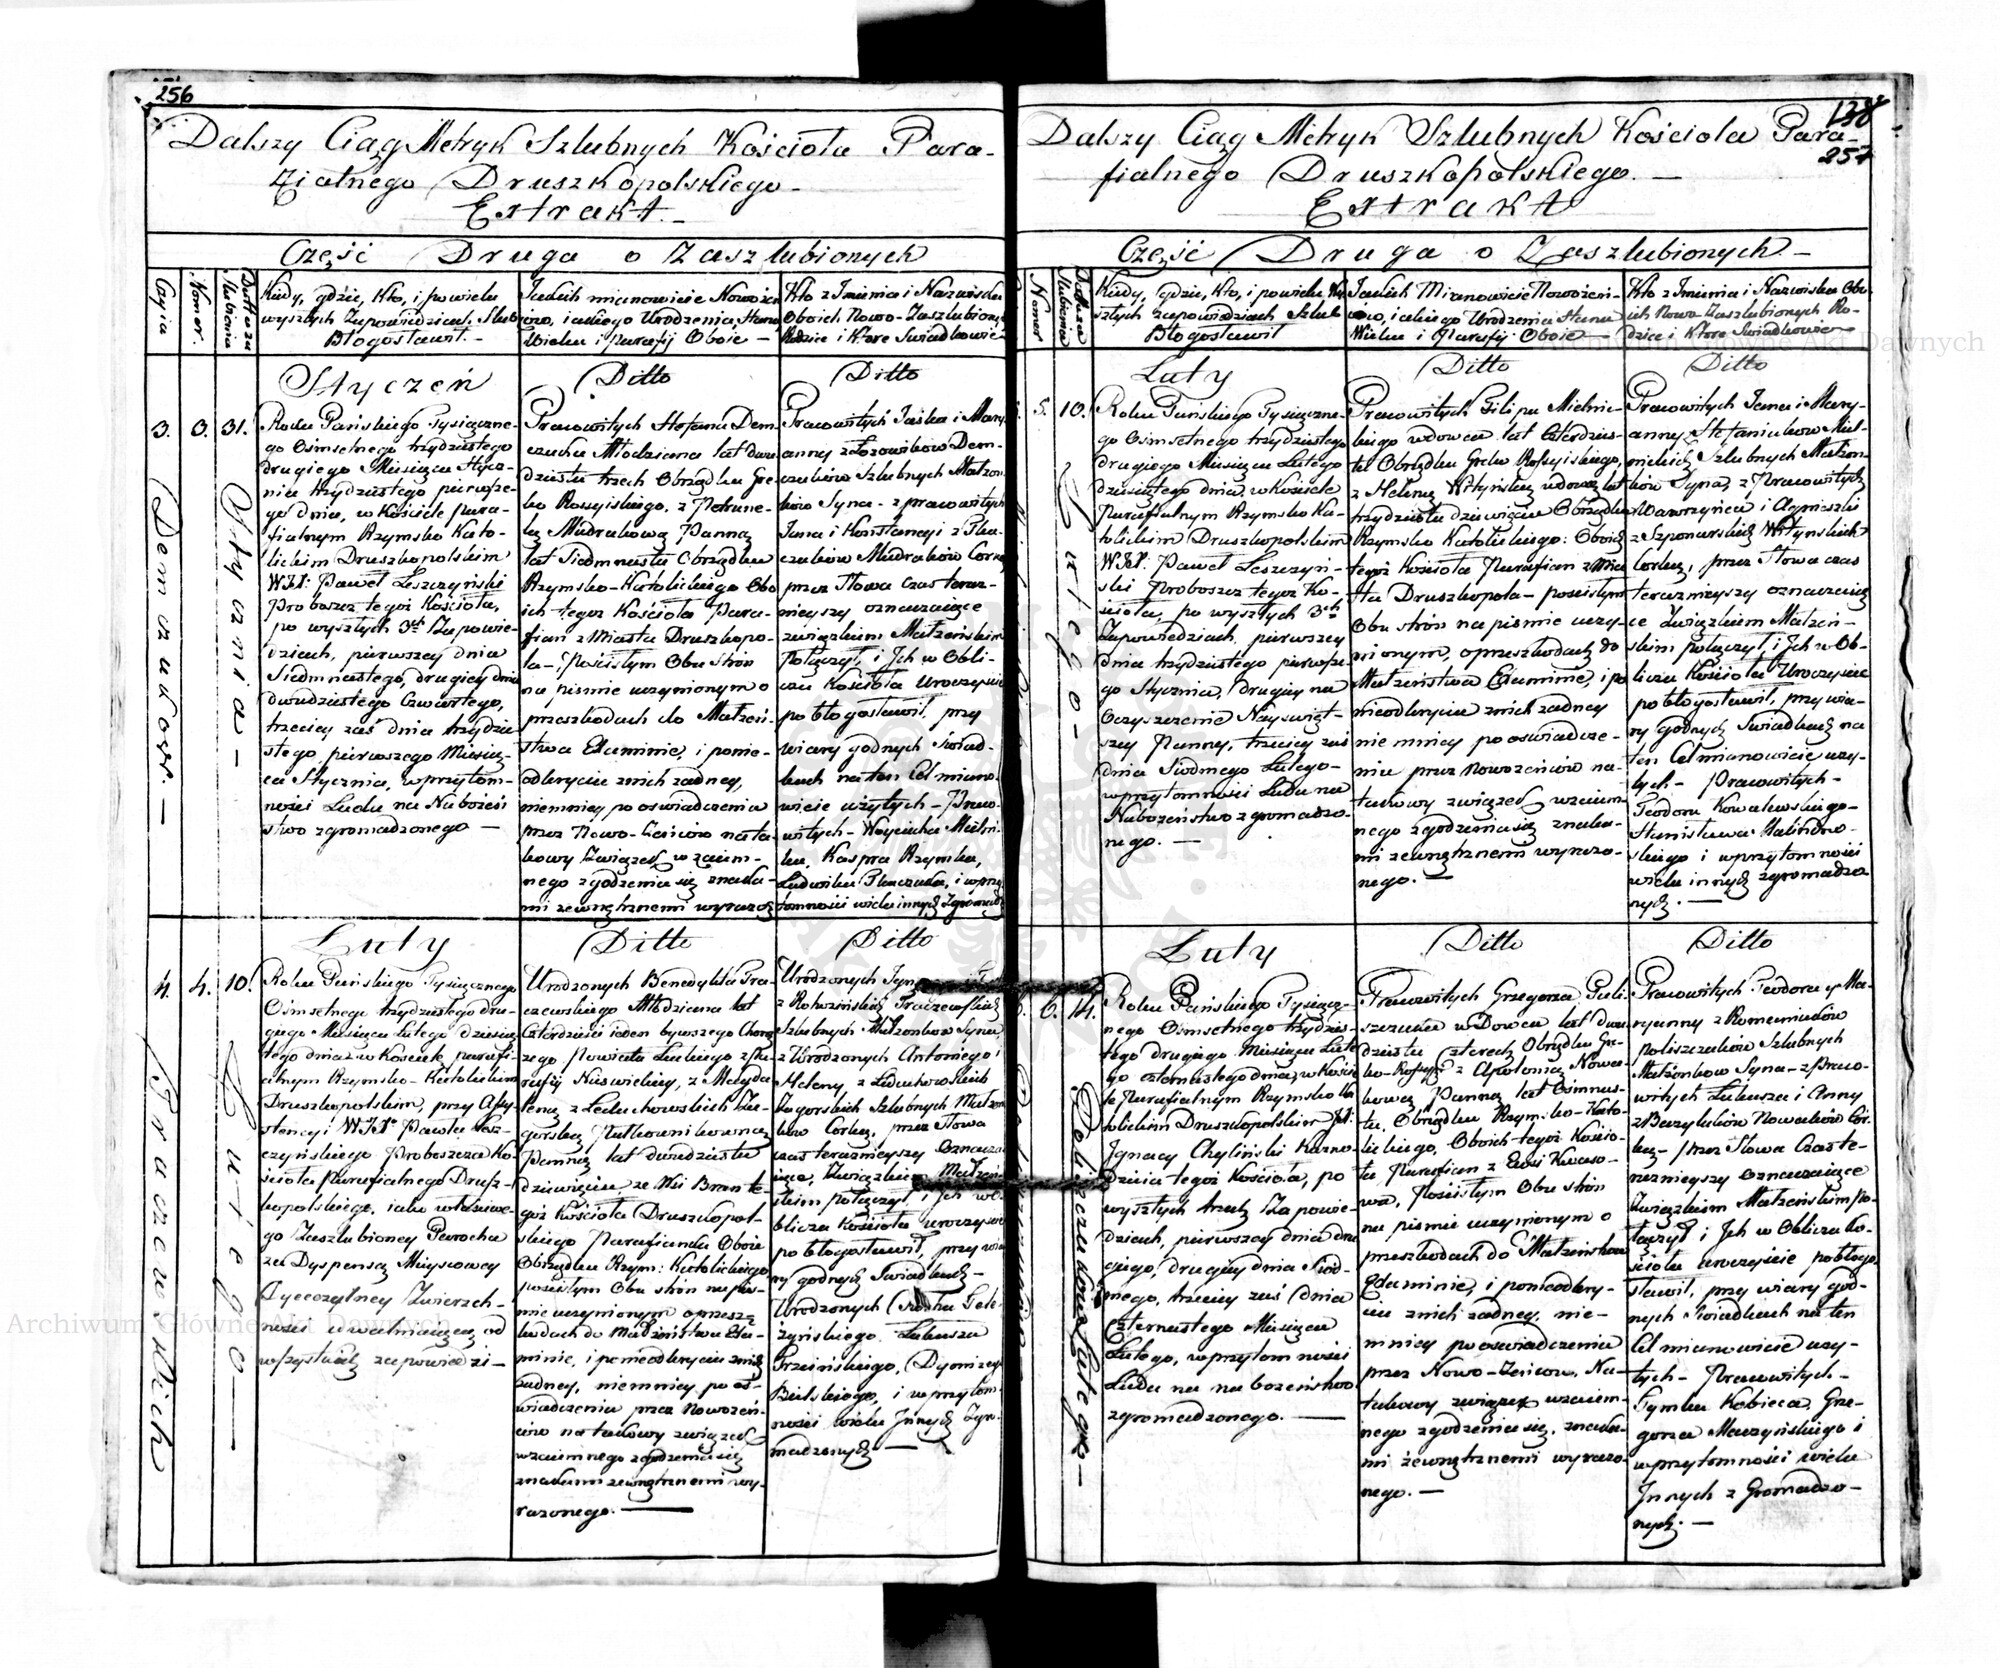 256
Dalszy Ciąg Metryk Szlubnych Kościoła Para-
fialnego Druszkopolskiego -
Extrakt. -
Część Druga o Zaszlubionych
Czyia
Nomer.
Datta za Slubienia
Kiedy, gdzie, Kto, i po wielu
wyszłych Zapowiedziach Slub
Błogosławił. -
Jakich mianowicie Nowożeń
ców, iakiego Urodzenia, Stanu
Wieku i Parafij Oboie -
Kto z Imienia i Nazwiska
Oboich Nowo-Zaszlubionych
Rodzice i Które Swiadkowie -
3.
Demczukow. -
3.
31.
Stycznia -
Styczeń
Roku Pańskiego Tysiączne-
go Osmsetnego trzydziestego
drugiego Miesiąca Stycz-
nia trzydziestego pierwsze-
go dnia, w Kościele para-
fialnym Rzymsko Kato-
lickim Druszkopolskim
WJX: Paweł Leszczyński
Proboszcz tegoż Kościoła,
po wyszłych 3ch Zapowie-
dziach, pierwszey dnia
Siedmnastego, drugiey dnia
dwudziestego Czwartego,
trzeciey zaś dnia trzydzie
stego pierwszego Miesią-
ca Stycznia, w przytom-
ności Ludu na Nabożeń
stwo zgromadzonego -
Ditto
Pracowitych Stefana Dem-
czuka Młodziana lat dwu
dziestu trzech Obrządku Gre-
ko Rossyiskiego, z Petrune-
lą Mudrakową Panną
lat Siedmnastu Obrządku
Rzymsko-Katolickiego Obo
ich tegoż Kościoła Para-
fian z Miasta Druszkopo-
la -, Pościsłym Obu Strón
na piśmie uczynionym o
przeszkodach do Małżeń-
stwa Examinie, i ponie-
odkryciu żadney,
niemniey po oswiadczenia
przez Nowo-Żeńców na ta-
kowy Związek w zaiem-
nego zgodzenia się znaka-
mi zewnętrznemi
Ditto
Pracowitych Jaśka i Mary
anny z Łozowików Dem-
czuków Szlubnych Małżon-
ków Syna - z pracowitych
Jana i Konstancyi z Tka-
czuków Mudraków Corką
przez Słowa Czas teraz-
nieyszy oznaczaiące
związkiem Małżeńskim
Połączył, i Jch w Obli-
czu Kościoła Uroczyscie
pobłogosławił, przy
wiary godnych Swiad-
kach na ten Cel miano-
wicie użytych - Praco-
witych - Woyciecha
Kaspra Rzymka,
Ludwika Tkaczuka, i w przy
tomności wielu innych Zgromadz
4.
Traczewskich
4.
10.
Lutego -
Luty
Roku Pańskiego Tysiącznego
Osmsetnego trzydziestego dru-
giego Miesiąca Lutego dziesią
tego dnia w Kościele parafi-
alnym Rzymsko-Katolickim
Druszkopolskim, przy Assy-
stencyi WJX: Pawła Lesz-
czyńskiego Proboszcza Ko-
ścioła Parafialnego Drusz-
kopolskiego, iako właściwe-
go Zaszlubioney Parocha
za Dyspensą Mieyscowey
Dyecezylney Zwierzch-
ności uwalniaiącą od
wszystkich zapowiedzi -
Ditto
Urodzonych Benedykta Tra-
czewskiego Młodziana lat
Czterdzieści ieden bywszego Chorą
żego Powiatu Łuckiego z Pa-
rafij Nieswickiey, z Magda
leną z Leduchowskich Za-
gorską Pułkownikowną
Panną lat dwudziestu
dziewięciu ze Wsi Bran te-
goż Kościoła Druszkopol-
skiego Parafianką Oboie
Obrządku Rzym: Katolickiego
pościsłym Obu strón na piś-
mie uczynionym o przesz
kodach do Małżeństwa Exa-
minie, i ponieodkryciu
żadney, niemniey po oś-
wiadczenia przez Nowożeń-
ców na takowy związek
wzaiemnego zgodzenia się
znakami zewnętrznemi wy-
rażonego. -
Ditto
Urodzonych
z Rohozińskich Traczewskich
Szlubnych Małżonków Syna,
z Urodzonych Antoniego i
Heleny z Leduchowskich
Zagorskich Szlubnych Małżon
ków Corką, przez Słowa
czas teraznieyszy Oznacza-
iące, Związkiem Małżeń-
skim połączył, i Jch w O-
bliczu Kościoła uroczyscie
pobłogosławił, przy wia
ry godnych Swiadkach -
Urodzonych
Łukasza
Dyonizego
Bielskiego, i w przytom-
ności wielu Jnnych Zgro-
madzonych -
138
257
Dalszy Ciąg Metryk Szlubnych Kościoła Para-
fialnego Druszkopolskiego. -
Extrakt
Część Druga o Zaszlubionych -
Nomer
Datta za Slubienia
Kiedy, gdzie, Kto, i po wielu Wy
szłych zapowiedziach Szlub
Błogosławił
Jakich Mianowicie Nowożeń-
ców, iakiego Urodzenia Stanu
Wieku i Parafij Oboie -
Kto z Imienia i Nazwiska Obo-
ich Nowo-Zaszlubionych Ro-
dzice i Które Swiadkowie
5.
10.
Lutego -
Luty
Roku Pańskiego Tysiączne-
go Osmsetnego trzydziestego
drugiego Miesiąca Lutego
dziesiątego dnia, w Kościele
Parafialnym Rzymsko Ka-
tolickim Druszkopolskim
WJX: Paweł Leszczyń-
ski Proboszcz tegoż Ko-
ścioła, po wyszłych 3ch
Zapowiedziach, pierwszey
dnia trzydziestego pierwsze-
go Stycznia, drugiey na
Oczyszczenie Nayswięt-
szey Panny, trzeciey zaś
dnia Siodmego Lutego -
w przytomności Ludu na
Nabożeństwo zgromadzo-
nego. -
Ditto
Pracowitych Filipa Mielnic-
kiego wdowca lat Czterdzies-
tu Obrządku Greko Rossyiskiego,
z Heleną Wityńską wdową lat
trzydziestu dziewięciu Obrządku
Rzymsko Katolickiego: Oboich
tegoż Kościoła Parafian z Mia-
sta Druszkopola - pościsłym
Obu strón na piśmie uczy-
nionym, o przeszkodach do
Małżeństwa Examinie, i po
nieodkryciu żadney
nie mniey po oswiadcze-
niu przez Nowożeńców na-
takowy związek wzaiem-
nego zgodzenia się znaka-
mi zewnętrznemi wyrażo-
nego. -
Ditto
Pracowitych Jana i Mary-
anny Stefaniuków Miel-
nickich Szlubnych Małżon-
ków Syna, z Pracowitych
Wawrzyńca i Agnieszki
z Szponarskich Wityńskich
Corką, przez Słowa czas
teraznieyszy oznaczaią
ce Związkiem Małżeń-
skim połączył, i Jch w Ob-
liczu Kościoła Uroczyscie
pobłogosławił, przy wia-
ry godnych Swiadkach na
ten Cel mianowicie uży-
tych - Pracowitych -
Teodora Kowalewskiego -
Stanisława Malinow-
skiego i w przytomności
wielu innych zgromadzo
nych. -
6.
14.
Poliszczukow Lutego -
Luty
Roku Pańskiego Tysiącz-
nego Osmsetnego trzydzies-
tego drugiego Miesiąca Lute
go czternastego dnia, w Kościo
le Parafialnym Rzymsko Ka
tolickim Druszkopolskim JX:
Jgnacy Chyliński Kazno-
dzieia tegoż Kościoła, po
wyszłych trzech Zapowie-
dziach, pierwszey dnia dru
giego, drugiey dnia Siod-
mego, trzeciey zaś dnia
Czternastego Miesiąca
Lutego, w przytomności
Ludu na nabożeństwo
zgromadzonego. -
Ditto
Pracowitych Grzegorza Poli-
szczuka wdowca lat dwu
dziestu czterech Obrządku Gre-
ko-Rossyi: z Apolonią Nowa-
kową Panną lat Osmnas-
tu, Obrządku Rzymsko-Kato-
lickiego, Oboich tegoż Kościo-
ła Parafian z Wsi Kwaso-
wa, Pościsłym Obu strón
na piśmie uczynionym o
przeszkodach do Małżeństwa
Examinie, i ponieodkry-
ciu żadney, nie-
mniey po oswiadczenia
przez Nowo-Żeńców, Na-
takowy związek wzaiem-
nego zgodzenia się, znaka-
mi żewnętrznemi wyrażo-
nego. -
Ditto
Pracowitych Teodora y Ma-
ryanny z Romaniuków
Poliszczuków Szlubnych
Małżonków Syna - z Praco-
witych Łukasza i Anny
z Bazyluków Nowaków Cór-
ką - przez Słowa Czas te-
raznieyszy Oznaczaiące
Związkiem Małżeńskim po-
łączył i Jch w Obliczu Ko-
ścioła uroczyscie pobłogo
sławił, przy wiary god-
nych Swiadkach na ten
Cel mianowicie uży-
tych - Pracowitych -
Tymka Kobieca, Grze-
gorza Maczyńskiego i
w przytomności wielu
Jnnych z Gromadzo-
nych. -
Archiwum Główne Akt Dawnych
Archiwum Główne Akt Dawnych